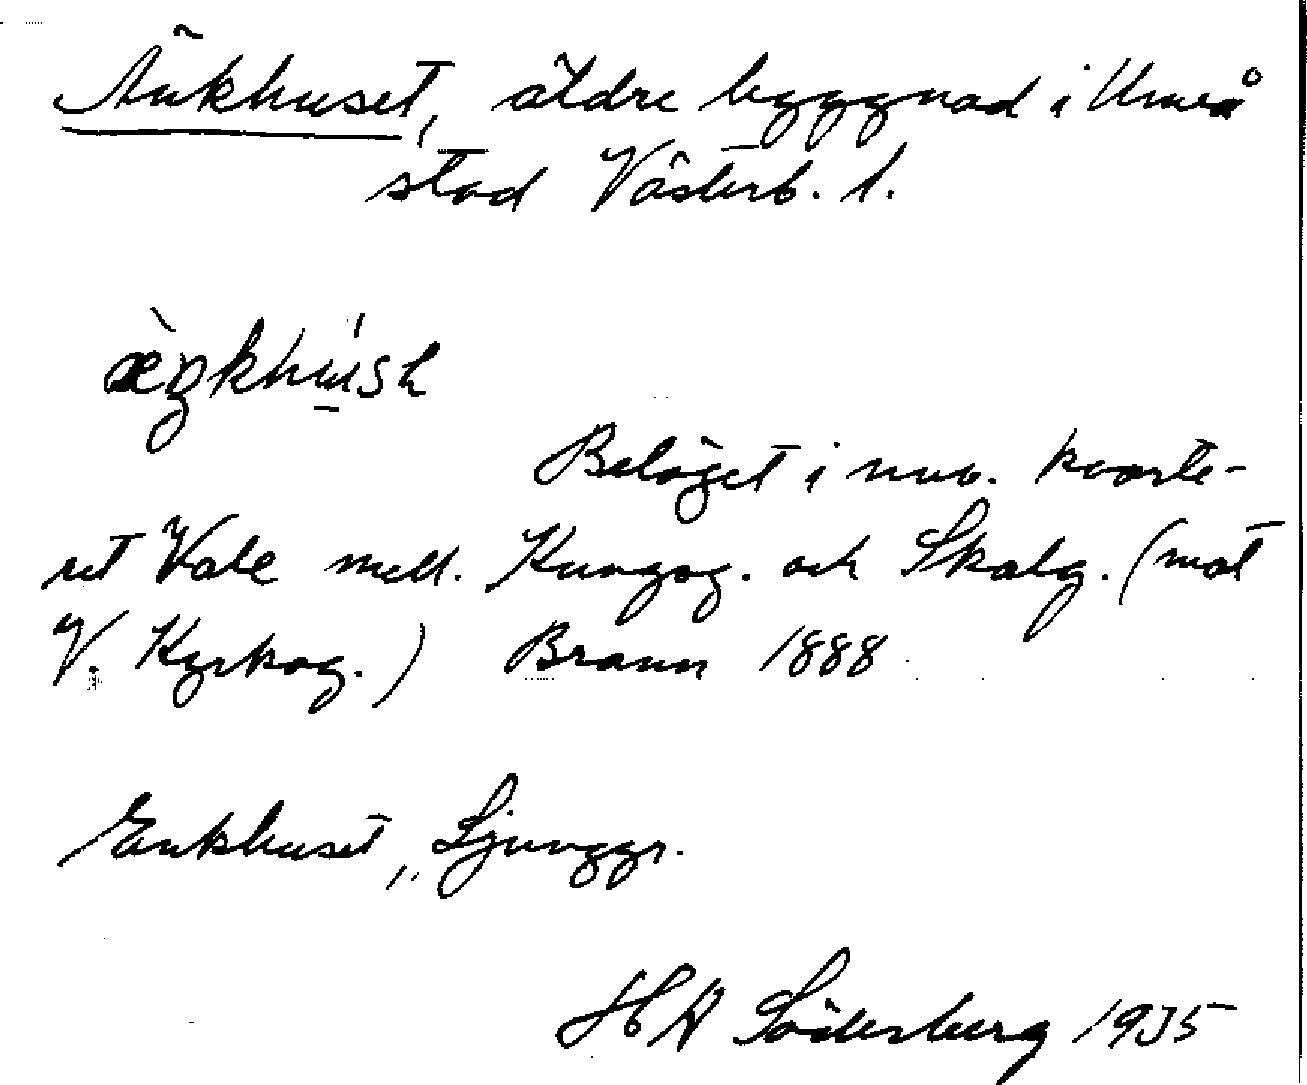 Änkhuset, äldre byggnad i Umeå
stad Västerb. l.
Beläget i nuv. kvarte-
ret Vale mell. Kungsg. och Skolg. (mot
V. Kyrkog.) Brann 1888
Enkhuset, Ljunggr.
H A Söderberg 1935